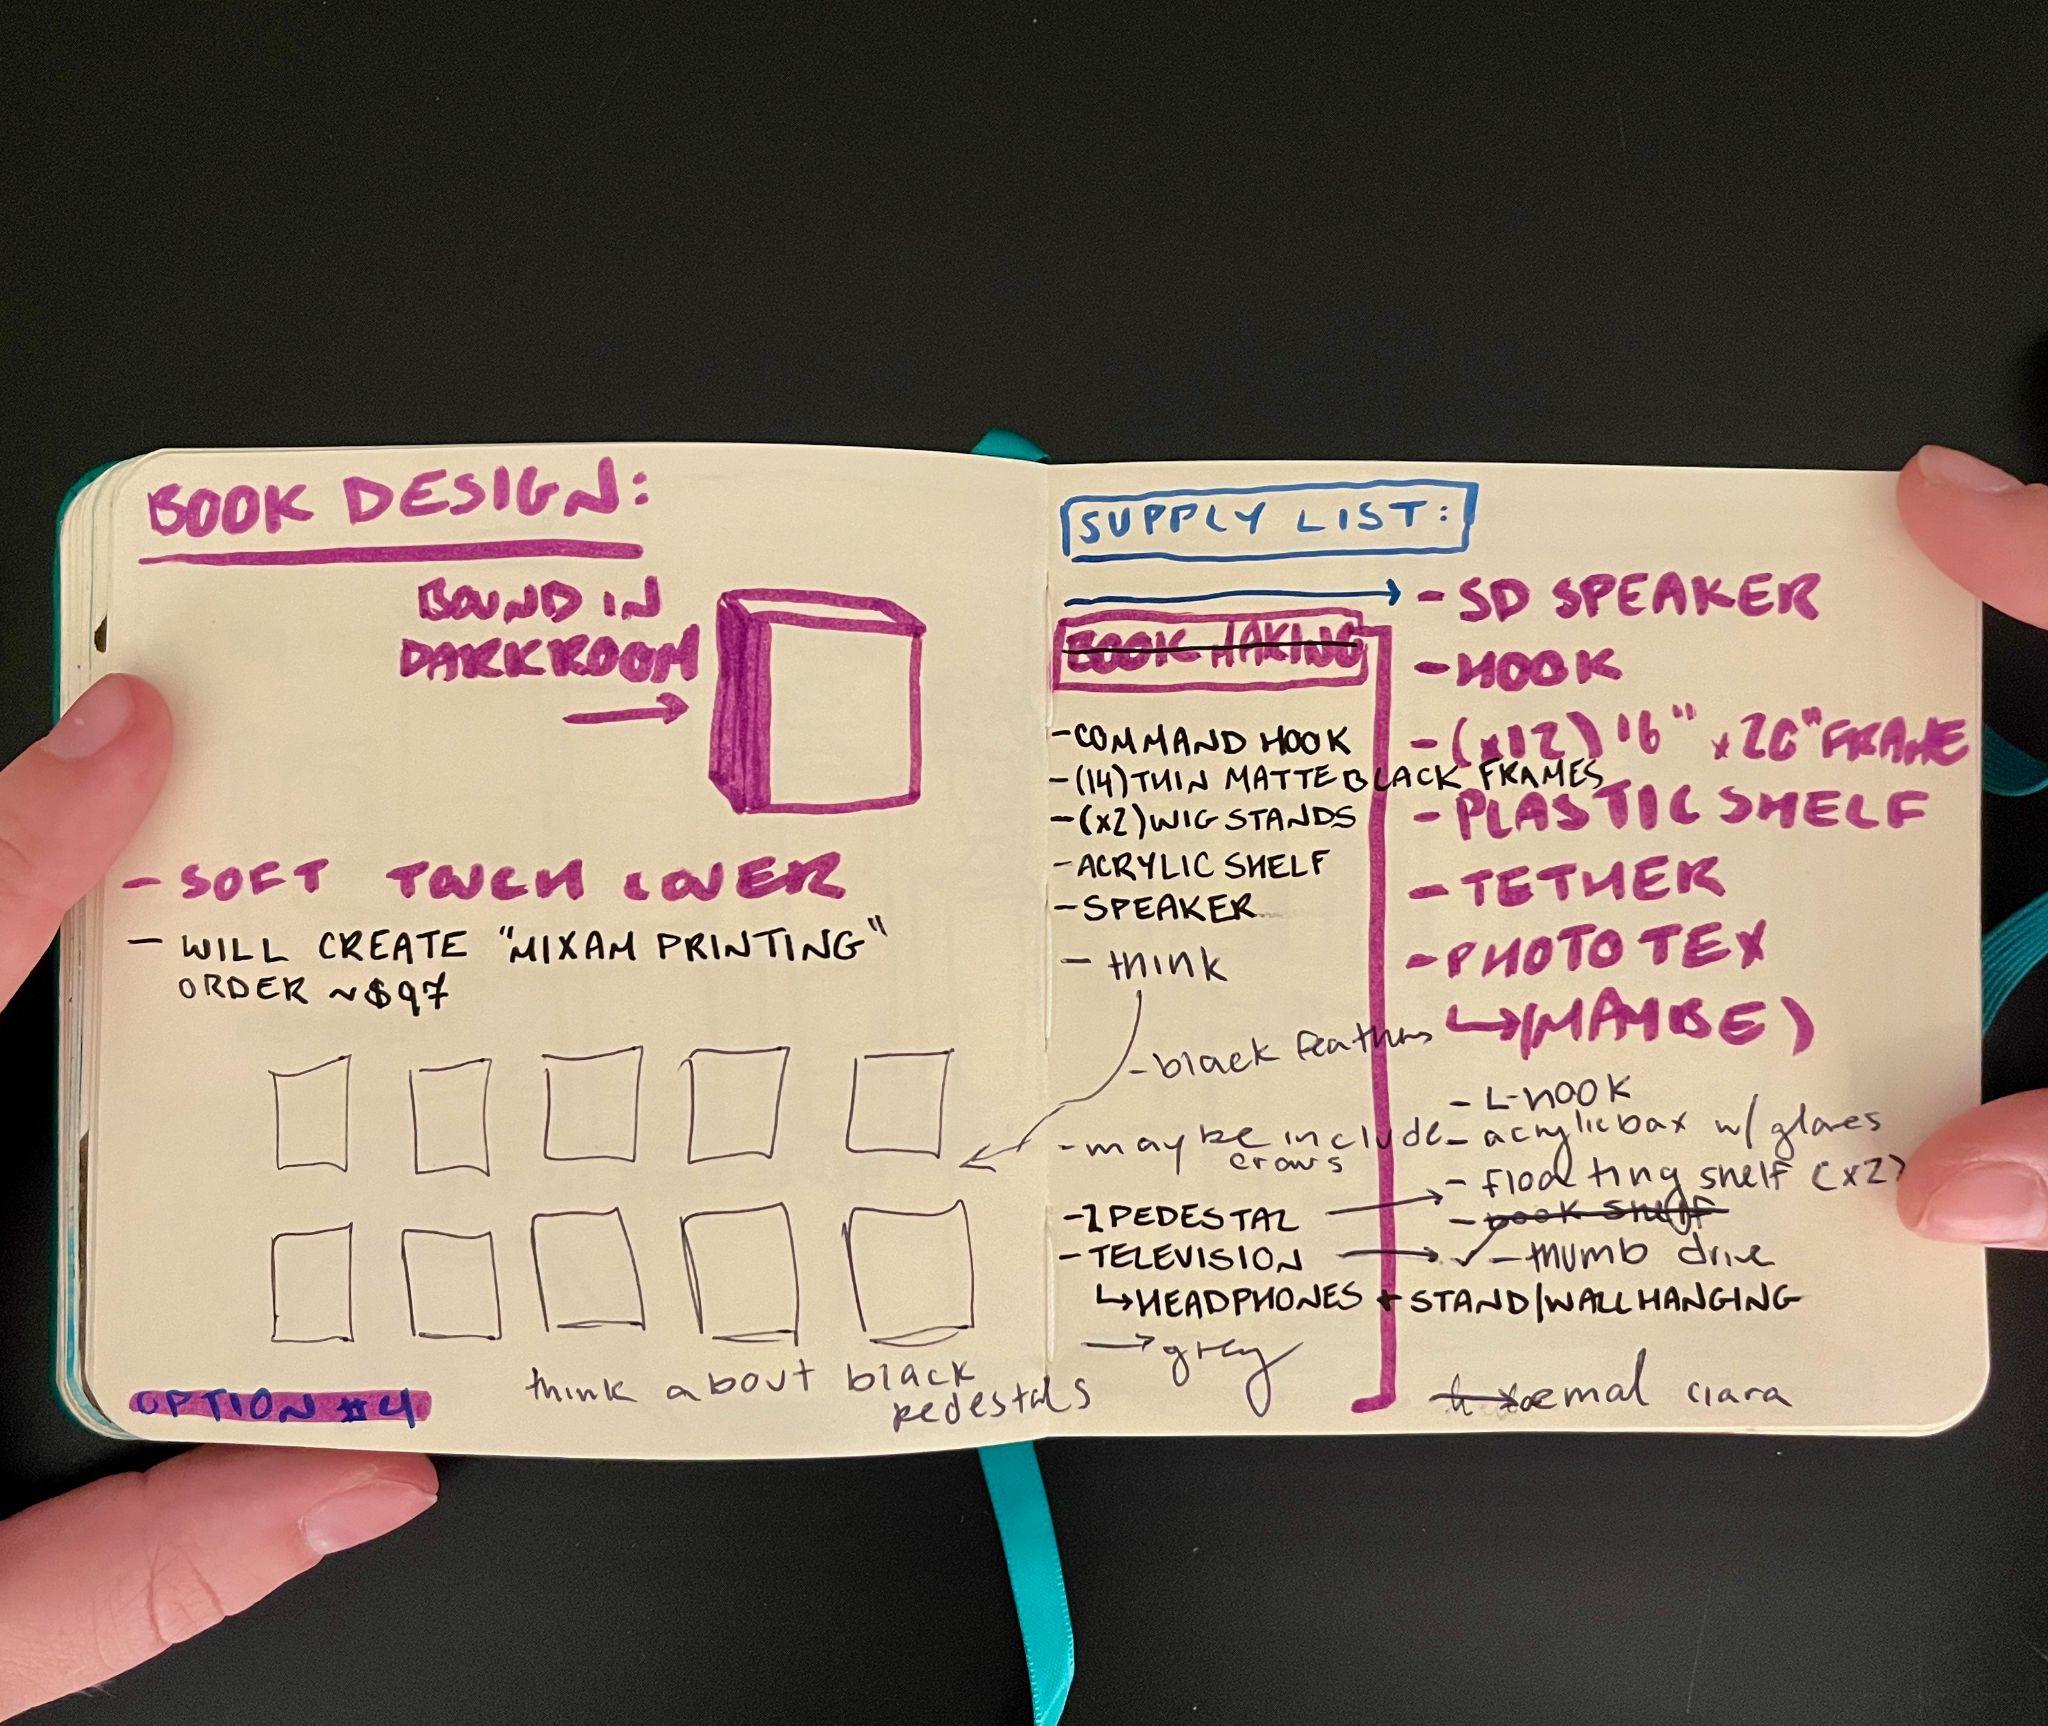 BOOK DESIGN:
BOUND IN
DARKROOM
- SOFT TOUCH COVER
- WILL CREATE "MIXAM PRINTING"
ORDER ~$97
think about black
pedestals
OPTION #4
SUPPLY LIST:
BOOK MAKING
- COMMAND HOOK
- (14) THIN MATTE BLACK FRAMES
- (x2) WIG STANDS
- ACRYLIC SHELF
- SPEAKER
- think
- black feathers
- maybe include
crows
- 1 PEDESTAL
- TELEVISION
↳ HEADPHONES + STAND/WALL HANGING
→ grey
- SD SPEAKER
- HOOK
- (x12) 16" x 20" FRAME
- PLASTIC SHELF
- TETHER
- PHOTO TEX
↳ (MAYBE)
- L-HOOK
- acrylic box w/ gloves
- floating shelf (x2)
- book shelf
✓ - thumb drive
ciara